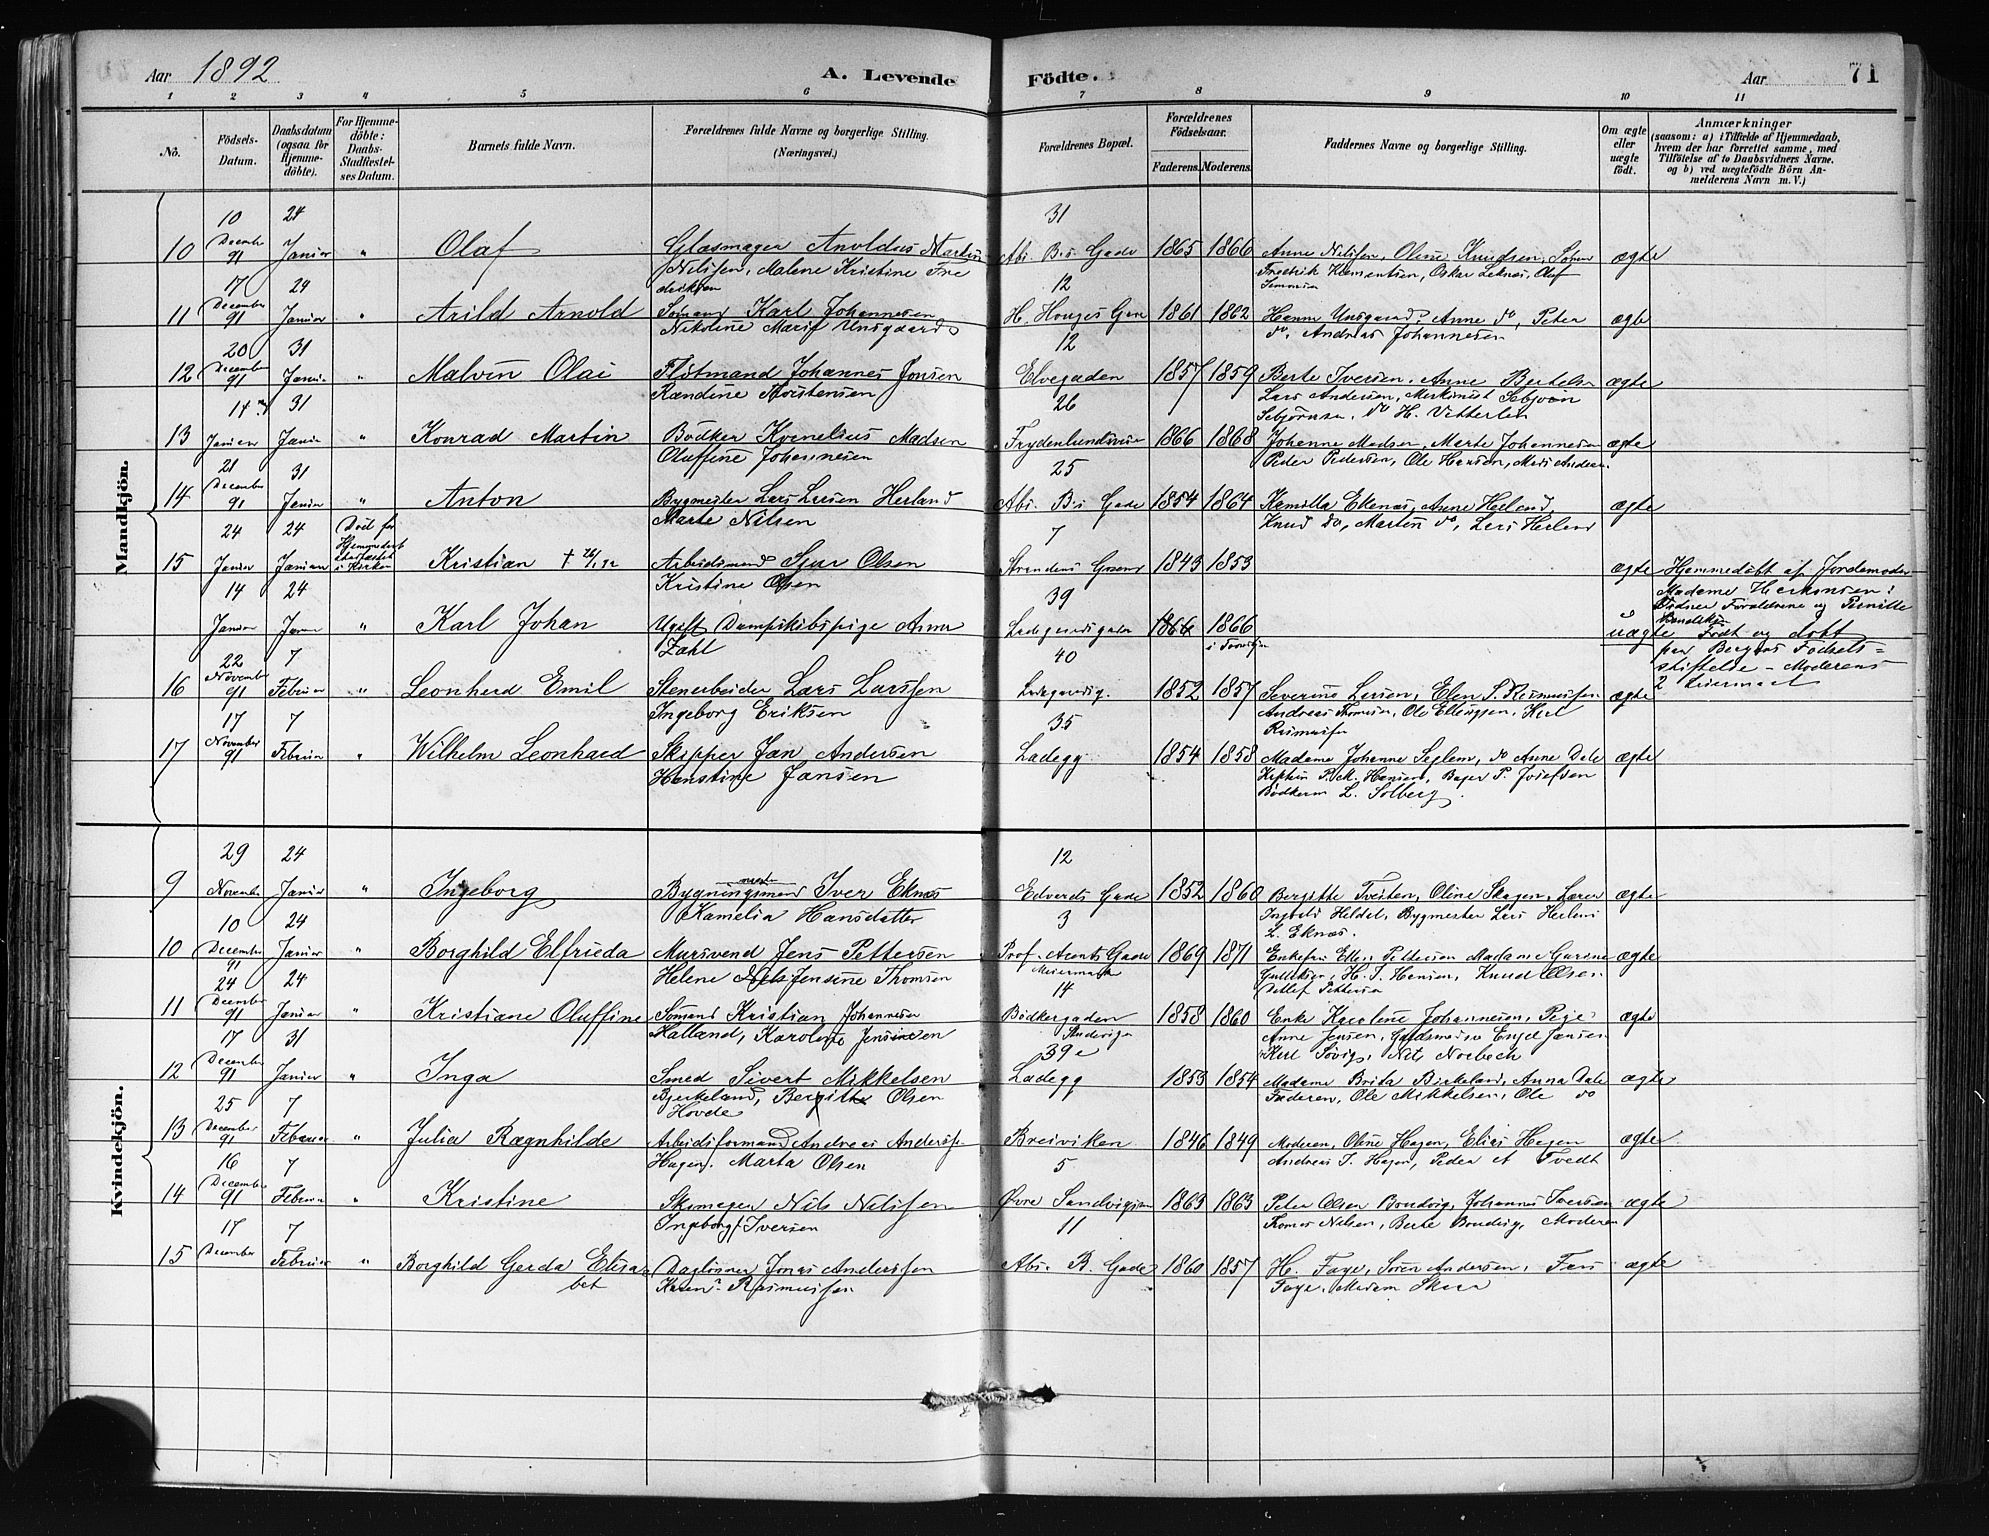 Aar 1892 A. Levende Födte. Aar 71
1 2 3 4 5 6 7 8 9 10 11
No. Födsels-Datum. Daabsdatum (ogsaa for Hjemmedöbte). For Hjemmedöbte: Daabs-Stadfæstelses Datum. Barnets fulde Navn. Forældrenes fulde Navne og borgerlige Stilling. (Næringsvei.) Forældrenes Bopæl. Forældrenes Födselsaar. Faderens. Moderens. Faddernes Navne og borgerlige Stilling. Om ægte eller uægte födt. Anmærkninger (saasom: a) i Tilfælde af Hjemmedaab, hvem der har forrettet samme, med Tilföielse af to Daabsvidners Navne. og b) ved uægtefödte Börn Anmelderens Navn m. V.)
Mandkjön.
10 24 31
10 December 91 Januar " Olaf Glasmager Arnoldus Martin Abs. B.s Gade 1865 1866 Anne Nilssen, Oline Knudsen, ægte
Nilssen, Malene Kristine Fredriksen Fredrik Klementsen, Oskar Leknes, Olaf
17 24 12
11 December 91 Januar " Arild Arnold Sömand Karl Johannesen H. Hauges Gade 1861 1862 Anne do, Peter ægte
Nikoline Marie Unsgaard do, Andreas Johannesen
20 31 12
12 December 91 Januar " Malvin Olai Flötmand Johannes Jonsen Elvegaden 1857 1859 Berte Iversen, Anne Bertelsen ægte
Randine Torstensen Lars Andersen,
14 31 26
13 Januar Januar " Konrad Martin Bödker Kornelius Madsen 1866 1868 Johanne Madsen, Marte Johannesen ægte
Oluffine Johannesen Peder Pedersen, Ole Hansen, Mads Andersen
21 31 25
14 December 91 Januar " Anton Bygmester Lars Larsen Herland Abs. B.s Gade 1854 1864 Kamilla Eknæs, Anne Herland, ægte
Marte Nilsen Knud do, Martin do, Lars Herland
24 24 Död för 7
15 Januar Januar Kristian † 26/1 92 Arbeidsmand Sjur Olsen 1843 1853 ægte Hjemmedöbt af Jordemoder
Kristine Olsen Madame Herkonsen:
14 24 39
Januar Januar " Karl Johan Ugift Dampskibspige Anna Ladegaardsgaden 1866 1866 uægte Födt og döbt
Zahl paa Bergens Födsels-
stiftelse - Moderens
2 Leiermaal
22 7 40
16 November 91 Februar " Leonhard Emil Stenarbeider Lars Larssen Ladegaardsg. 1852 1857 Severine Larsen, Elen S. Rasmussen ægte
Ingeborg Eriksen Andreas Thomsen, Ole Ellingsen, Karl
Rasmussen
17 7 35
17 November 91 Februar " Wilhelm Leonhard Skipper Jan Andersen Ladegg 1854 1858 Madame Johanne Seglem, do Anne Dale ægte
Hanstine Jansen Kaptein P. M. Hansen, Bager P. Josefsen
Bödkerm L. Solberg.
Kvindekjön.
29 24 12
9 November Januar " Ingeborg Bygningsmand Iver Eknæs Edvards Gade 1852 1860 Bergitte Tveiten, Oline Skagen, Lærer ægte
Kamelia Hansdatter Bygmester Lars Herland
L. Eknæs.
10 24 3
10 December 91 Januar " Borghild Elfrieda Mursvend Jens Pettersen Prof. Arents Gade 1869 1871 Enkefru Ellen Pettersen Madame Gurine ægte
Helene Jensine Thomsen Gulliksen, H. J. Hansen, Knud Olsen
Detlef Pettersen
24 24 14
11 December 91 Januar " Kristiane Oluffine Sömand Kristian Johannesen Bödkergaden 1858 1860 Enke Karoline Johannesen, Pige ægte
Halland, Karoline Jensen Sandvigen Anne Jensen,
Karl Sövig, Nils Norbech
17 31 39a
12 December 91 Januar " Inga Smed Sivert Mikkelsen Ladegg 1853 1854 Madame Brita Birkeland, Anna Dale ægte
Bjerkeland, Bergitte Olsen Faderen, Ole Mikkelsen, Ole do
Hovde
25 7
13 December 91 Februar " Julia Ragnhilde Arbeidsformand Andreas Anderssen Breiviken 1846 1849 Moderen, Oline Hagen, Elias Hagen ægte
Hagen, Marta Olsen Andreas J. Hagen, Peder A Tvedt
16 7 5
14 December 91 Februar " Kristine Skomager Nils Nilssen Övre Sandvigsvei 1863 1863 Peter Olsen Bondevig, Johannes Iversen ægte
Ingeborg Iversen Thomas Nilsen, Berte Bondevig, Moderen
17 7 11
15 December Februar " Borghild Gerda Elisabet Daglönner Jonas Anderssen Abs. B. Gade 1860 1857 H. Faye, Sören Andersen, ægte
Karen Rasmussen Faye, Madam